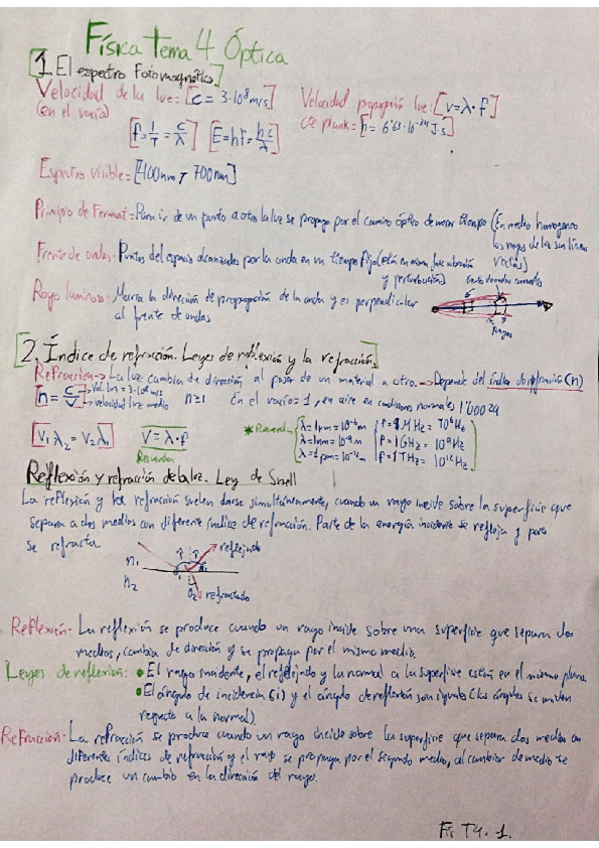 Física Tema 4 Óptica
1. El espectro Fotomagnético
Velocidad de la luz: [c = 3·10⁸ m/s] Velocidad propagación luz: [v=λ·f]
(en el vacío) cte plank = [h = 6'63·10⁻³⁴ J·s]
[f = 1/T = c/λ] [E = hf = hc/λ]
Espectro visible = [400nm y 700nm]
Principio de Fermat = Para ir de un punto a otro la luz se propaga por el camino óptico de menor tiempo (En medio homogéneo
los rayos de luz sin líneas
rectas)
Frente de ondas: Puntos del espacio alcanzados por la onda en un tiempo fijo (están en misma fase vibración
y perturbación)
Rayo luminoso: Marca la dirección de propagación de la onda y es perpendicular
al frente de ondas
2. Índice de refracción. Leyes de reflexión y la refracción
Refracción -> La luz cambia de dirección al pasar de un material a otro. -> Depende del índice de refracción (n)
[n = c/v] -> Vel. luz = 3·10⁸ m/s -> velocidad luz medio n≥1 En el vacío = 1, en aire en condiciones normales 1'00029
[v₁ λ₂ = v₂ λ₁] v = λ·f
Recuerda
* Recuerda
λ = 1μm = 10⁻⁶m f = 1MHz = 10⁶Hz
λ = 1nm = 10⁻⁹m f = 1GHz = 10⁹Hz
λ = 1pm = 10⁻¹²m f = 1THz = 10¹²Hz
Reflexión y refracción de la luz. Ley de Snell
La reflexión y la refracción suelen darse simultáneamente, cuando un rayo incide sobre la superficie que
separa a dos medios con diferente índice de refracción. Parte de la energía incidente se refleja y parte
se refracta
reflejado
n₁
n₂
refractado
Reflexión- La reflexión se produce cuando un rayo incide sobre una superficie que separa dos
medios, cambia de dirección y se propaga por el mismo medio.
Leyes de reflexión: • El rayo incidente, el reflejado y la normal a la superficie están en el mismo plano
• El ángulo de incidencia (i) y el ángulo de reflexión son iguales (los ángulos se miden
respecto a la normal)
Refracción- La refracción se produce cuando un rayo incide sobre la superficie que separa dos medios con
diferentes índices de refracción y el rayo se propaga por el segundo medio, al cambiar de medio se
produce un cambio en la dirección del rayo.
Fís T4. 1.